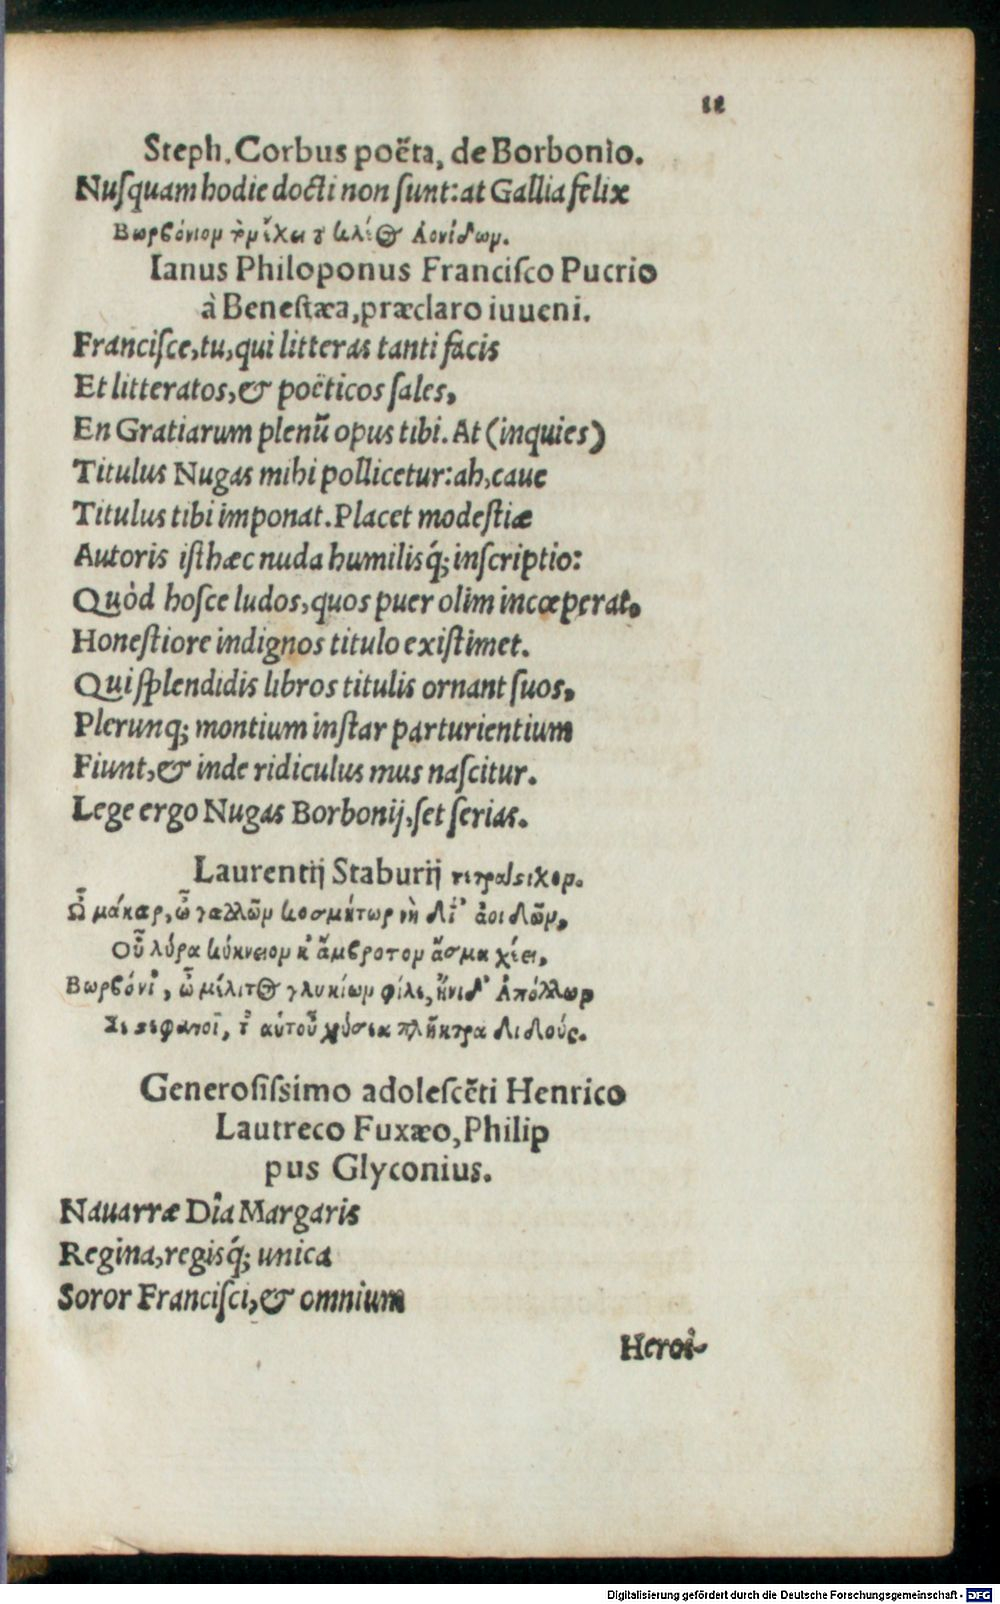 11
Steph. Corbus poëta, de Borbonio.
Nuſquam hodie docti non ſunt: at Gallia felix
Βωρβόνιον
Ianus Philoponus Franciſco Pucrio
à Beneſtæa, præclaro iuueni.
Franciſce, tu, qui litteras tanti facis
Et litteratos, & poëticos ſales,
En Gratiarum plenũ opus tibi. At (inquies)
Titulus Nugas mihi pollicetur: ah, caue
Titulus tibi imponat. Placet modeſtiæ
Autoris iſthæc nuda humilisq́; inſcriptio:
Quòd hoſce ludos, quos puer olim incœperat,
Honeſtiore indignos titulo exiſtimet.
Qui ſplendidis libros titulis ornant ſuos,
Plerunq; montium inſtar parturientium
Fiunt, & inde ridiculus mus naſcitur.
Lege ergo Nugas Borbonij, ſet ſerias.
Laurentij Staburij
Ὦ μάκαρ, ὦ γαλλῶν κοσμῆτορ ἀοιδῶν,
Οὗ λύρα κύκνειον ἄμβροτον ᾆσμα χέει,
φίλε, Ἀπόλλων
αὐτοῦ χρύσεα πλῆκτρα διδούς.
Generoſiſsimo adoleſcẽti Henrico
Lautreco Fuxæo, Philip
pus Glyconius.
Nauarræ Dîa Margaris
Regina, regisq́; unica
Soror Franciſci, & omnium
Heroi-
Digitalisierung gefördert durch die Deutsche Forschungsgemeinschaft - DFG